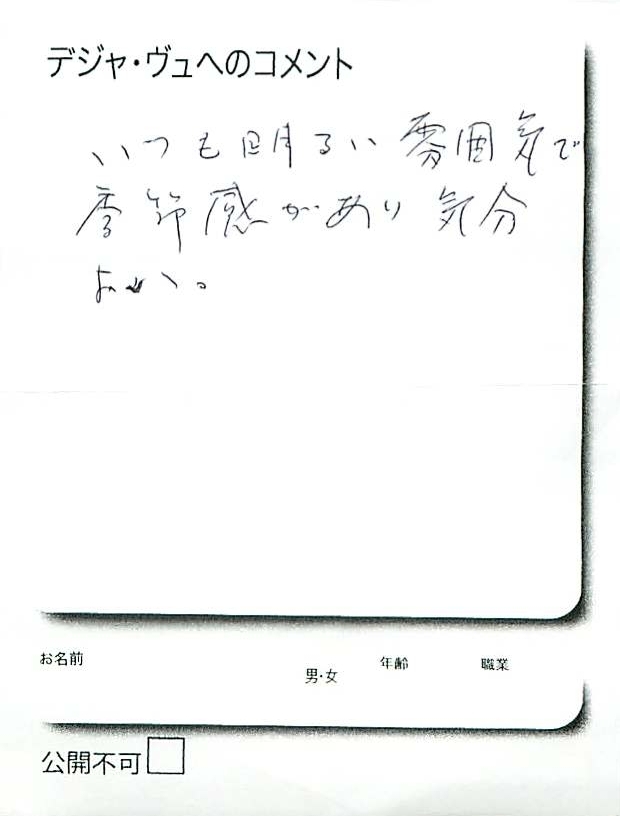 デジャ・ヴュへのコメント
いつも明るい雰囲気で
季節感があり気分
よい。
お名前
男・女 年齢 職業
公開不可